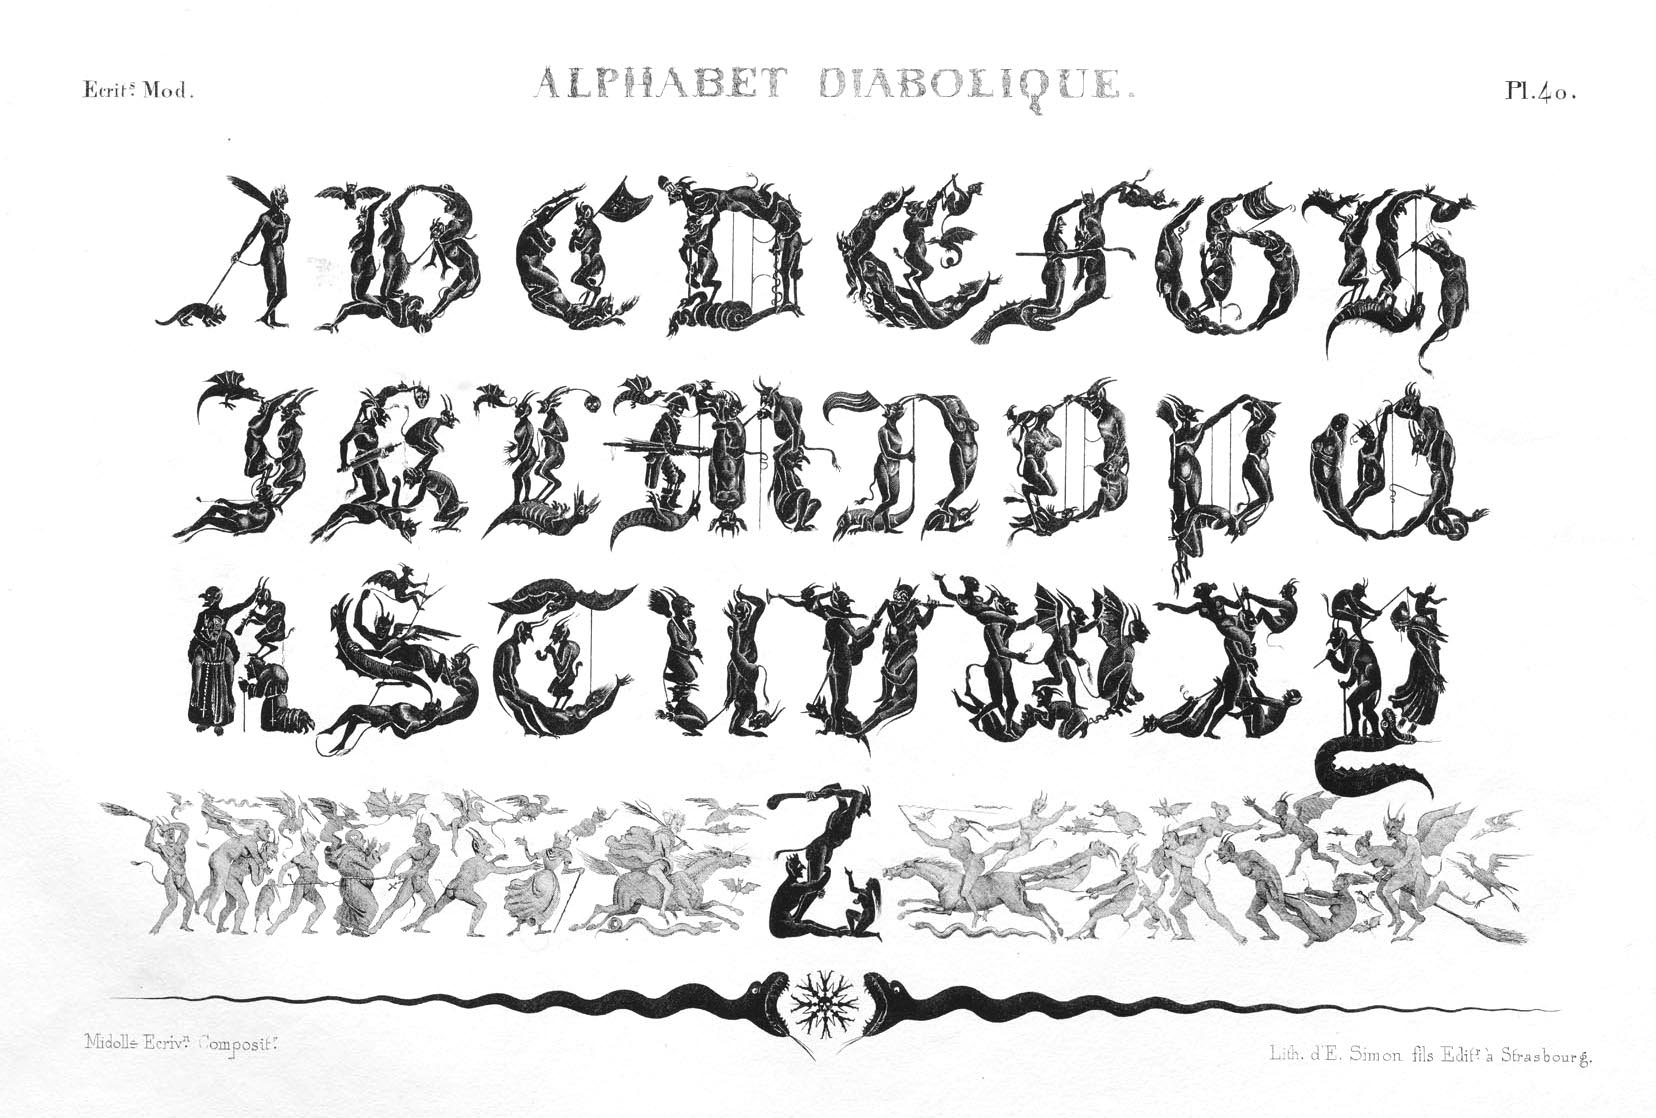 Ecrit.s Mod.
ALPHABET DIABOLIQUE.
Pl. 40.
A B C D E F G H
I K L M N O P Q
R S T U V W X Y
Z
Midolle Ecriv.n Composit.r
Lith. d'E. Simon fils Edit.r à Strasbourg.